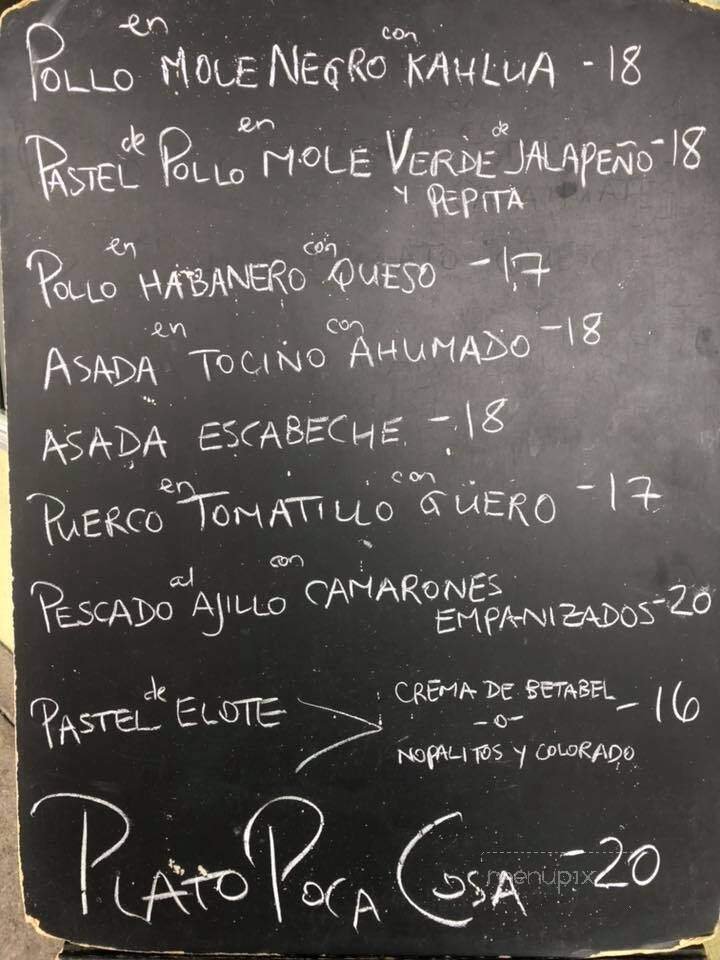 POLLO en MOLE NEGRO con KAHLUA -18
PASTEL de POLLO en MOLE VERDE de JALAPEÑO -18
Y PEPITA
POLLO en HABANERO con QUESO -17
ASADA en TOCINO con AHUMADO -18
ASADA ESCABECHE -18
PUERCO en TOMATILLO con GÜERO -17
PESCADO al AJILLO con CAMARONES
EMPANIZADOS -20
PASTEL de ELOTE
CREMA DE BETABEL
-O- -16
NOPALITOS Y COLORADO
PLATO POCA COSA -20
menupix